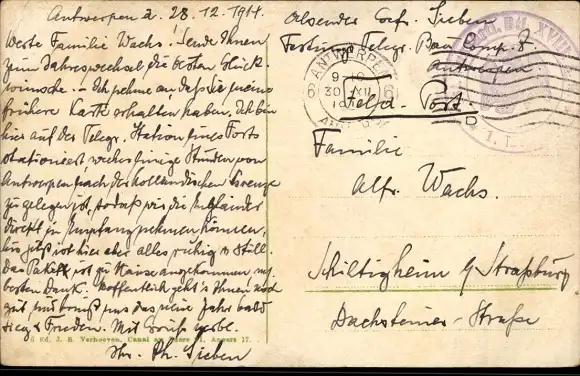 Antwerpen d. 28.12.1914.
Werte Familie Wachs! Sende Ihnen
zum Jahreswechsel die besten Glück-
wünsche. – Ich nehme an daß Sie meine
frühere Karte erhalten haben. Ich bin
hier auf der Telegr. Station eines Forts
stationiert, welches einige Stunden von
Antwerpen nach der holländischen Grenze
zu gelegen ist, sodaß wir die Engländer
direkt in Empfang nehmen können,
bis jetzt ist hier aber alles ruhig u. still.
Das Paket ist zu Hause angekommen
besten Dank. Hoffentlich geht's Ihnen noch
gut und bringt uns das neue Jahr bald
Sieg & Frieden. Mit Gruß verbl.
Ihr Ph. Sieben
Ed. J. B. Verhoeven, Canal au 11, Anvers 17.
Absender Gefr. Sieben
Festungs Telegr. Bau Comp. 8.
Antwerpen
Feld-Post.
ANTWERPEN
6 6
30 XII
D
Familie
Alfr. Wachs.
Schiltigheim b/ Straßburg
Dachsteiner-Straße